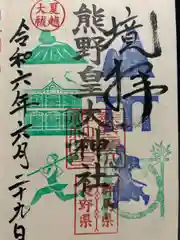 境拝
夏越
大祓
熊野皇大神社
長野県
群馬県
令和六年六月二十九日